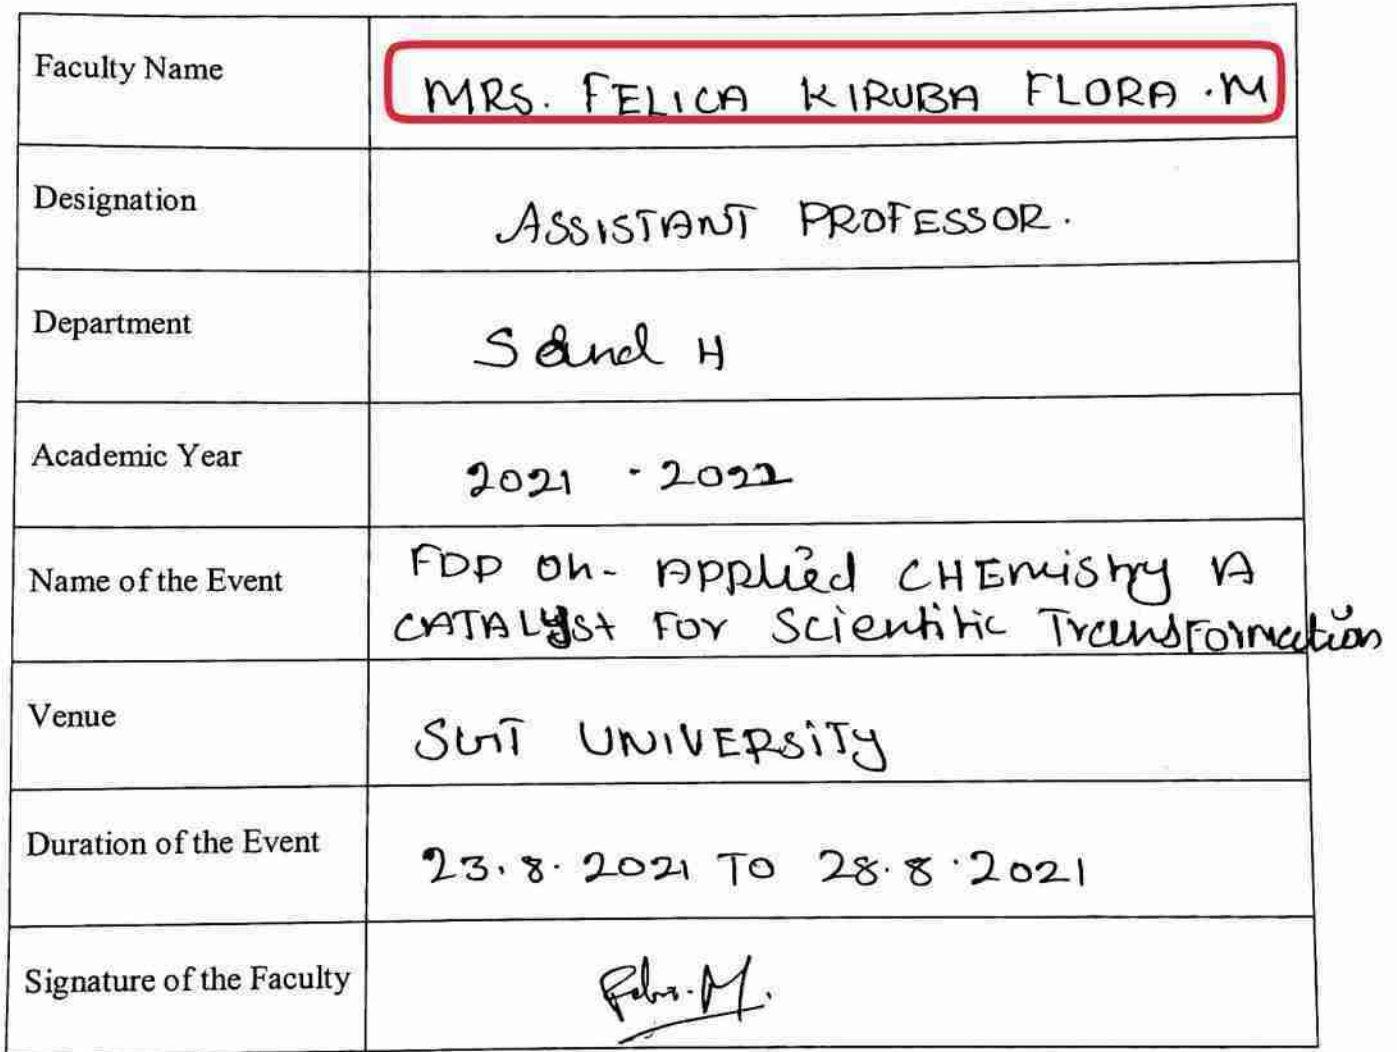 Faculty Name MRS. FELICA KIRUBA FLORA .M
Designation ASSISTANT PROFESSOR.
Department S and H
Academic Year 2021 - 2022
Name of the Event FDP on- Applied CHEMistry A
CATALYst FOR Scientific TransFormation
Venue UNIVERSiTy
Duration of the Event 23.8.2021 TO 28.8.2021
Signature of the Faculty